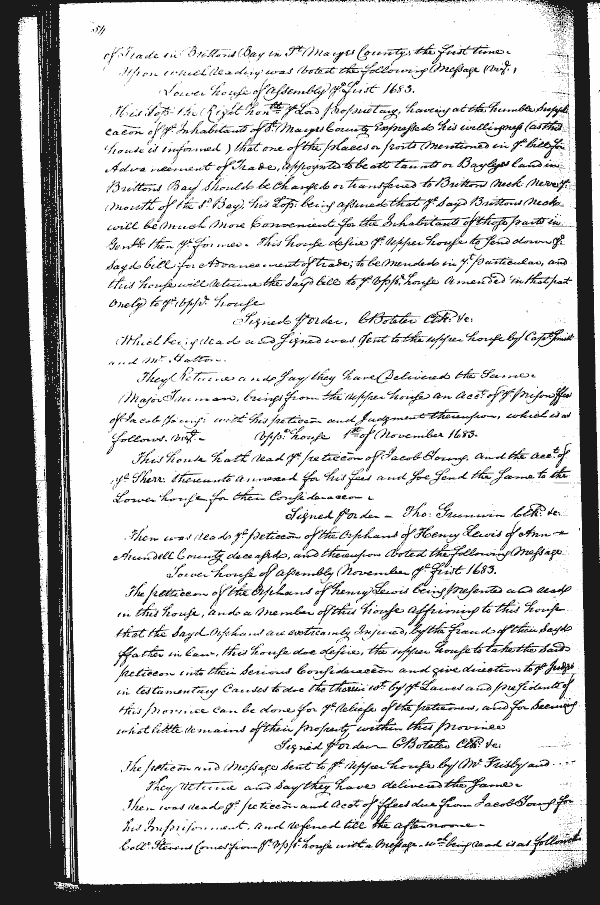 84
of Trade in Brittons Bay in St. Maryes County, the first time.
Upon which reading was Voted the following Message Vizt.
Lower house of Assembly 9br. ye first 1683.
His Lopp. the Right honble ye Lord proprietary, having at the humble Suppli
cacon of ye Inhabitants of St. Maryes County Expressed his willingness (as this
house is informed) that one of the places or ports Mentioned in ye bill for
Advancement of Trade, appoynted to be att taunts or Bayleys land in
Brittons Bay should be Changed or transferred to Brittons neck neere ye
mouth of the Sd Bay, his Lopp. being assured that ye Sayd Brittons Neck
will be much more Convenient for the Inhabitants of those parts in
Genll. then ye former. This house desire ye upper house to Send down ye
Sayd bill for Advancement of trade, to be mended in yt particular, and
this house will returne the Sayd bill to ye Uppr. house amended in that part
onely to ye Uppr. house
Signed p order, C Boteler Clk. &c.
Which being read and Signed was Sent to the upper house by Capt. Smith
and Mr. Hatton.
They Returne and Say they have Delivered the Same.
Major Truman, brings from the upper house an Acct. of ye prison ffees
of Jacob Young with his peticon and Judgment thereupon, which is as
follows. Vizt. Uppr. house 1st of November 1683.
This house hath read ye peticon of Jacob Young, and the acct. of
ye Sherr. thereunto annexed for his fees and doe Send the Same to the
Lower house for their Consideracon.
Signed p order Tho: Grunwin Clk. &c.
Then was read ye peticon of the Orphans of Henry Lewis of Ann
Arundell County deceased, and thereupon Voted the following Message
Lower house of assembly November ye first 1683.
The peticon of the Orphans of henry Lewis being presented and read
in this house, and a Member of this house affirming to this house
that the Sayd Orphans are extreamly Injured, by the fraud of their Sayd
ffather in law, this house doe desire, the upper house to take the Said
peticon into their Serious Consideracon and give direction to ye Judge
in testamentary Causes to doe the therein wt. by ye Lawes and presidents of
this province can be done for ye reliefe of the petitioners, and for Secureing
what little remains of their property within this Province
Signed p order C Boteler Clk &c.
The peticon and Message Sent to ye upper house by Mr. Frisby and ....
They returne and Say they have delivered the Same.
Then was read ye peticon and Acct of ffees due from Jacob Young for
his Imprisonment, and referred till the afternoone.
Coll. Stevens Comes from ye Uppr. house with a Message wch. being read is as followeth